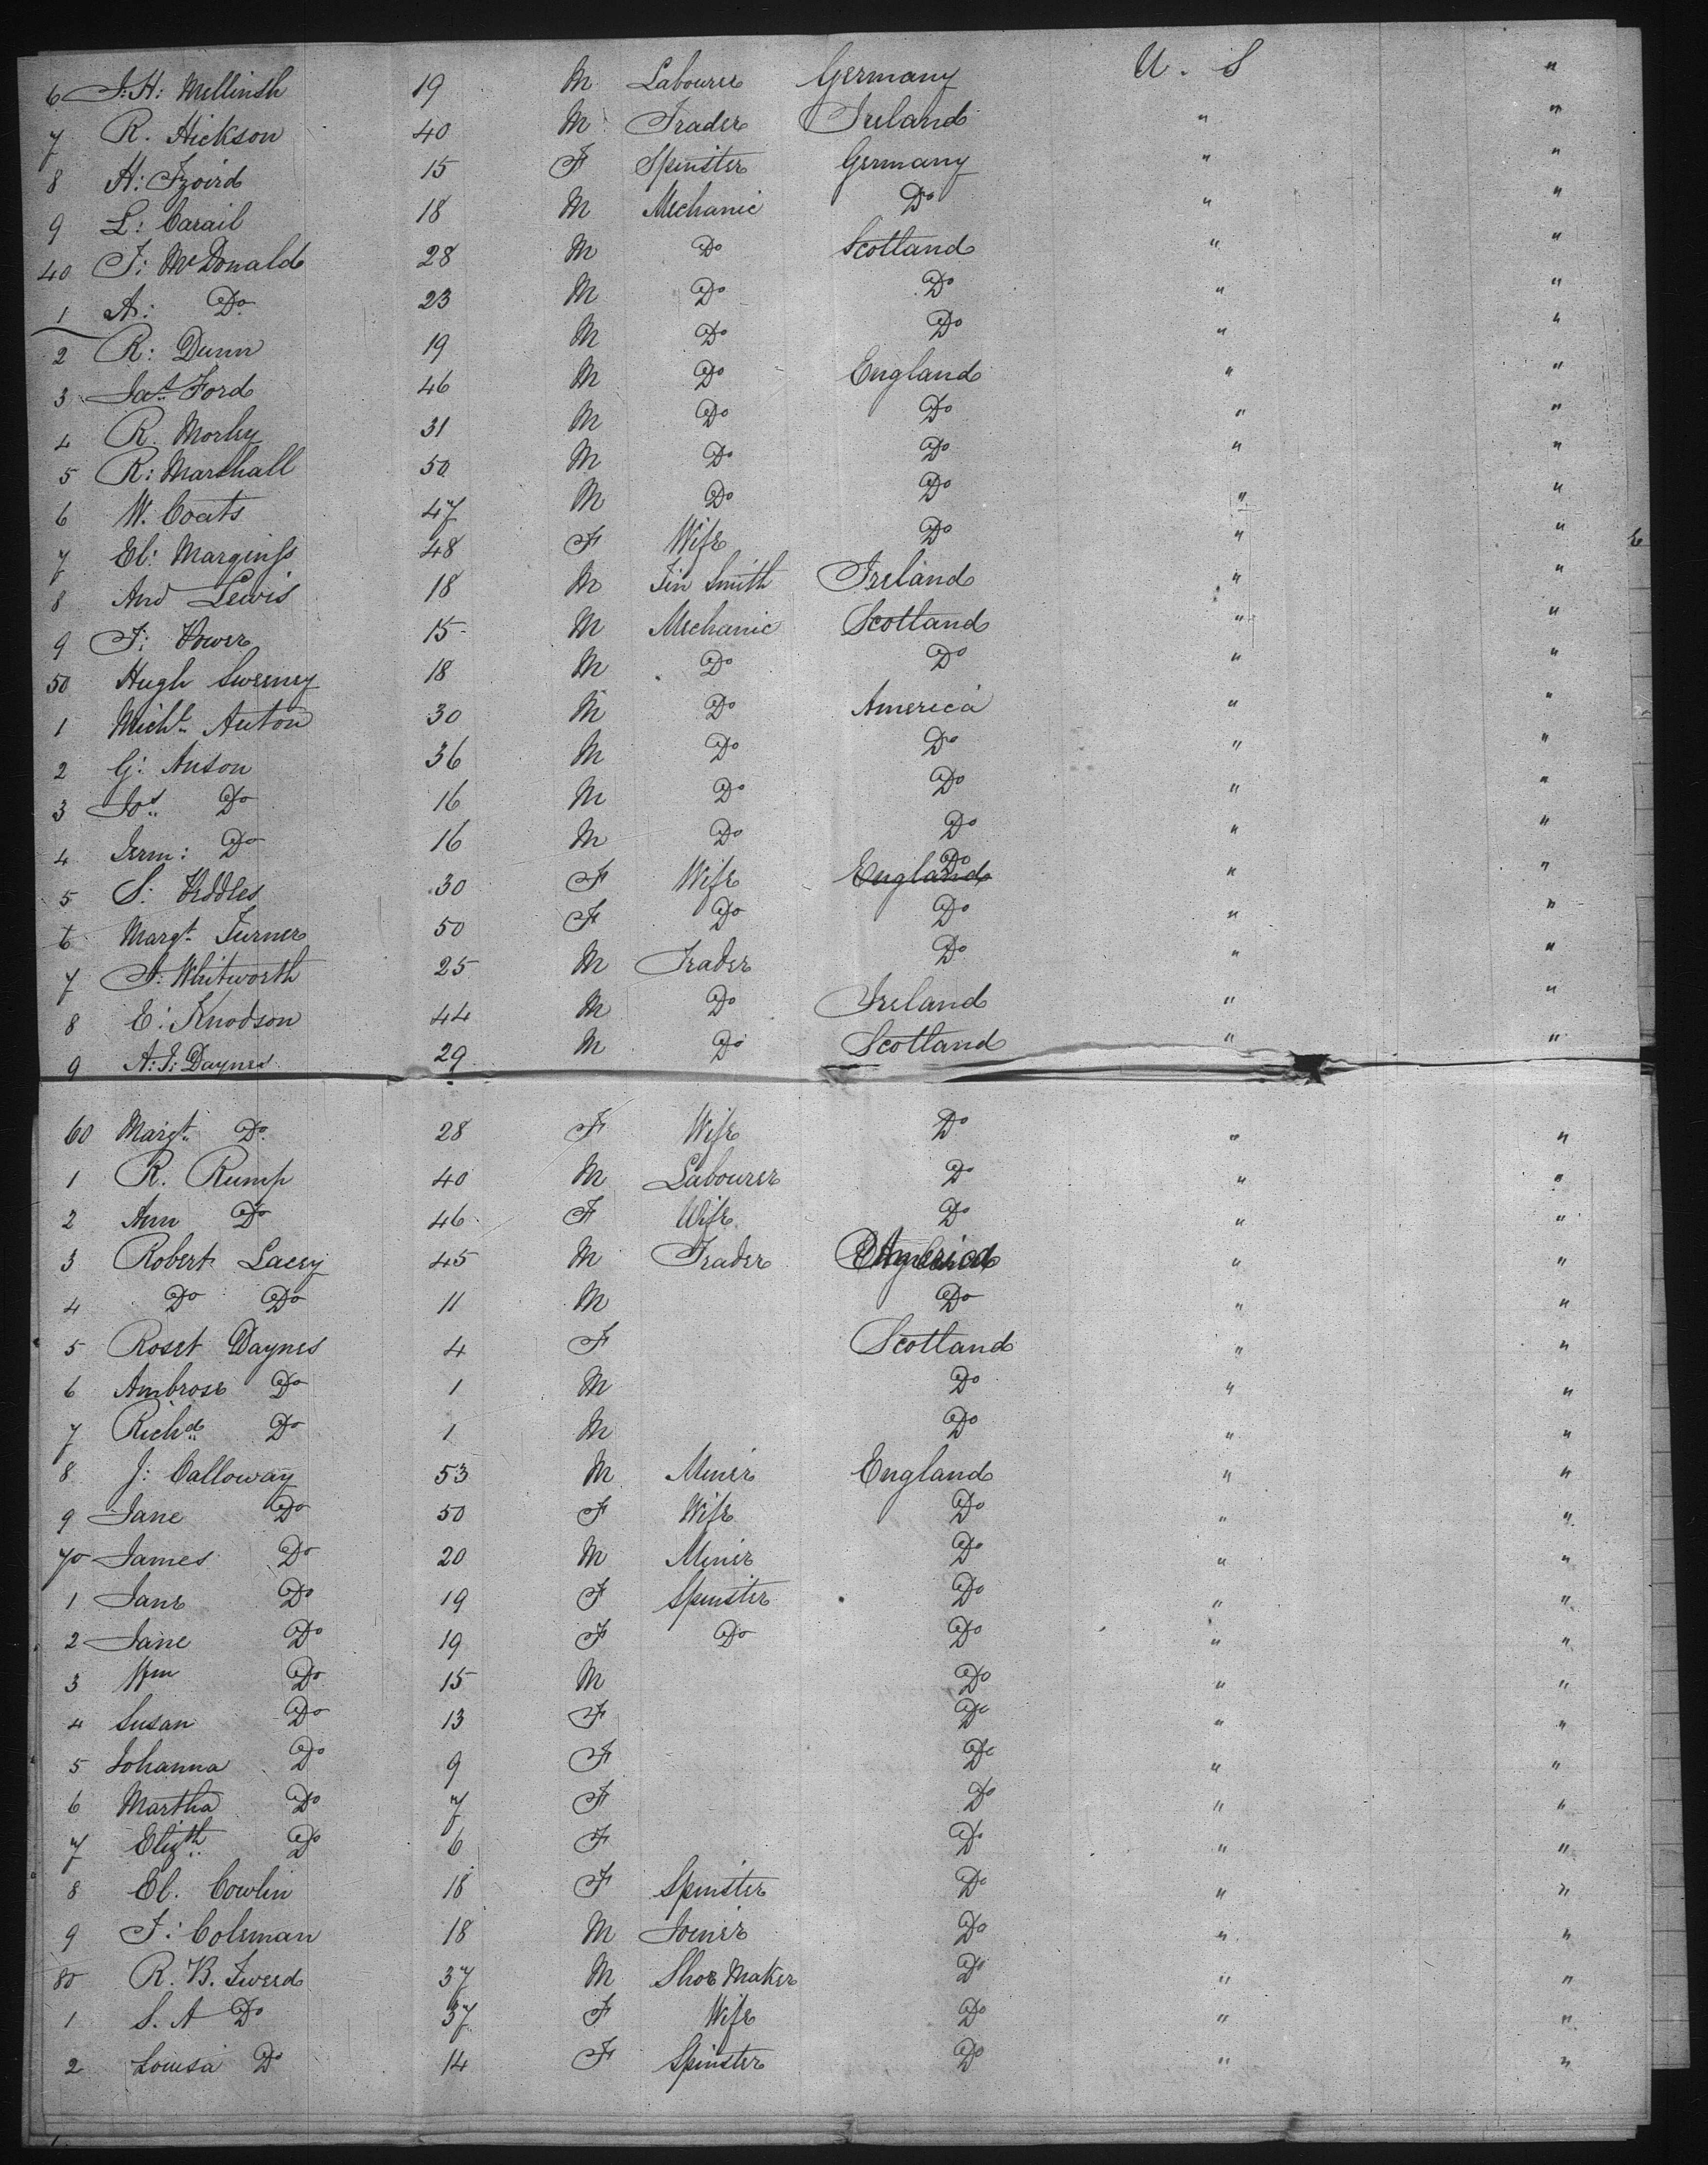 6 J: H: Mellinsh 19 M Labourer Germany U. S "
7 R. Hickson 40 M Trader Ireland " "
8 H: 15 F Spinster Germany " "
9 L: Carail 18 M Mechanic Do " "
40 J: McDonald 28 M Do Scotland " "
1 A: Do 23 M Do Do " "
2 R: Dunn 19 M Do Do " "
3 Jas Ford 46 M Do England " "
4 R. Morley 31 M Do Do " "
5 R: Marshall 50 M Do Do " "
6 W. Coats 47 M Do Do " "
7 El: 48 F Wife Do " "
8 And Lewis 18 M Tin Smith Ireland " "
9 J: Power 15 M Mechanic Scotland " "
50 Hugh Sweeney 18 M Do Do " "
1 Michl Auton 30 M Do America " "
2 G: Anson 36 M Do Do " "
3 Jos Do 16 M Do Do " "
4 Jerm: Do 16 M Do Do " "
5 S: Peddles 30 F Wife England Do " "
6 Margt Turner 50 F Do Do " "
7 J: Whitworth 25 M Trader Do " "
8 E: Knodson 44 M Do Ireland " "
9 A: J: Daynes 29 M Do Scotland " "
60 Margt Do 28 F Wife Do " "
1 R. Rump 40 M Labourer Do " "
2 Ann Do 46 F Wife Do " "
3 Robert Lacey 45 M Trader America " "
4 Do Do 11 M Do " "
5 Roset Daynes 4 F Scotland " "
6 Ambrose Do 1 M Do " "
7 Richd Do 1 M Do " "
8 J: Calloway 53 M Miner England " "
9 Jane Do 50 F Wife Do " "
70 James Do 20 M Miner Do " "
1 Jane Do 19 F Spinster Do " "
2 Jane Do 19 F Do Do " "
3 Wm Do 15 M Do " "
4 Susan Do 13 F Do " "
5 Johanna Do 9 F Do " "
6 Martha Do 7 F Do " "
7 Elizth Do 6 F Do " "
8 El. Cowlin 18 F Spinster Do " "
9 J: Coleman 18 M Joiner Do " "
80 R. B. Tweed 37 M Shoe Maker Do " "
1 S. A Do 37 F Wife Do " "
2 Louisa Do 14 F Spinster Do " "